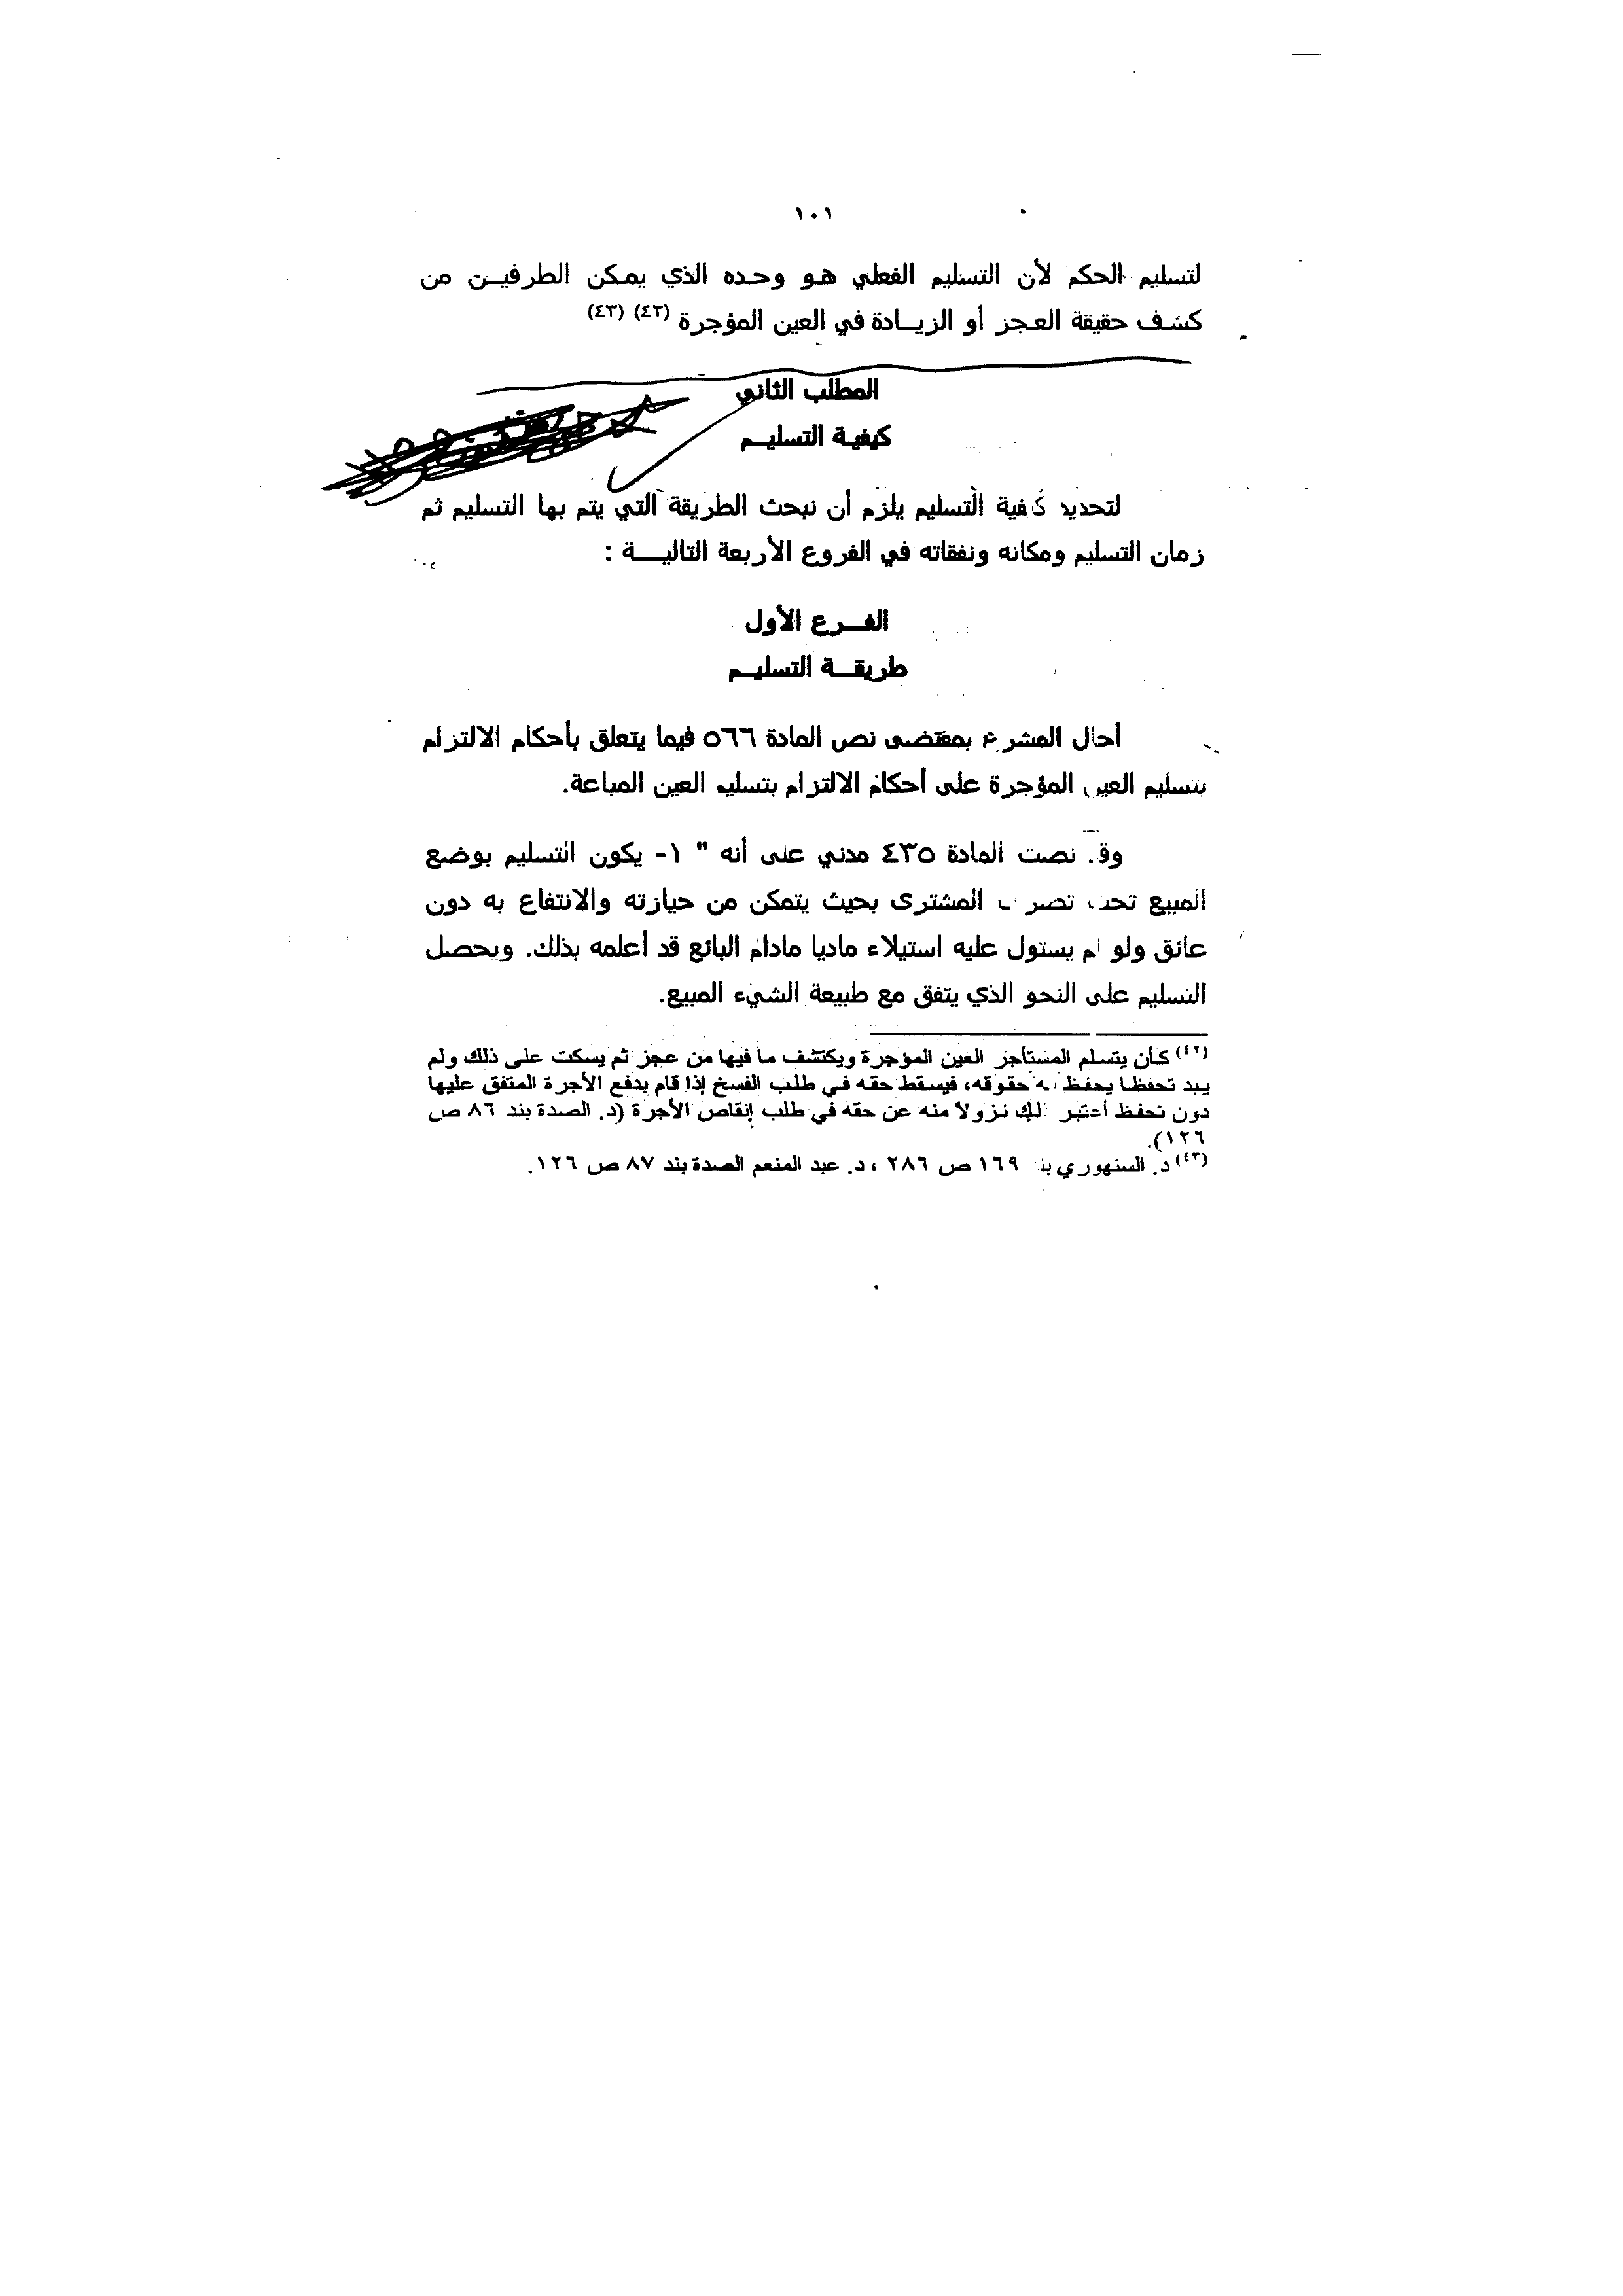 ١٠١
لتسليم الحكم لأن التسليم الفعلي هو وحده الذي يمكن الطرفين من
كشف حقيقة العجز أو الزيادة في العين المؤجرة (٤٢) (٤٣)
المطلب الثاني
كيفية التسليم
لتحديد كيفية التسليم يلزم أن نبحث الطريقة التي يتم بها التسليم ثم
زمان التسليم ومكانه ونفقاته في الفروع الأربعة التالية :
الفرع الأول
طريقة التسليم
أحال المشرع بمقتضى نص المادة ٥٦٦ فيما يتعلق بأحكام الالتزام
بتسليم العين المؤجرة على أحكام الالتزام بتسليم العين المباعة.
وقد نصت المادة ٤٣٥ مدني على أنه " ١- يكون التسليم بوضع
المبيع تحت تصرف المشترى بحيث يتمكن من حيازته والانتفاع به دون
عائق ولو لم يستول عليه استيلاء ماديا مادام البائع قد أعلمه بذلك. ويحصل
التسليم على النحو الذي يتفق مع طبيعة الشيء المبيع.
(٤٢) كأن يتسلم المستأجر العين المؤجرة ويكتشف ما فيها من عجز ثم يسكت على ذلك ولم
يبد تحفظا يحفظ به حقوقه، فيسقط حقه في طلب الفسخ إذا قام بدفع الأجرة المتفق عليها
دون تحفظ أعتبر ذلك نزولا منه عن حقه في طلب إنقاص الأجرة (د. الصدة بند ٨٦ ص
١٢٦).
(٤٣) د. السنهوري بند ١٦٩ ص ٢٨٦ ، د. عبد المنعم الصدة بند ٨٧ ص ١٢٦.